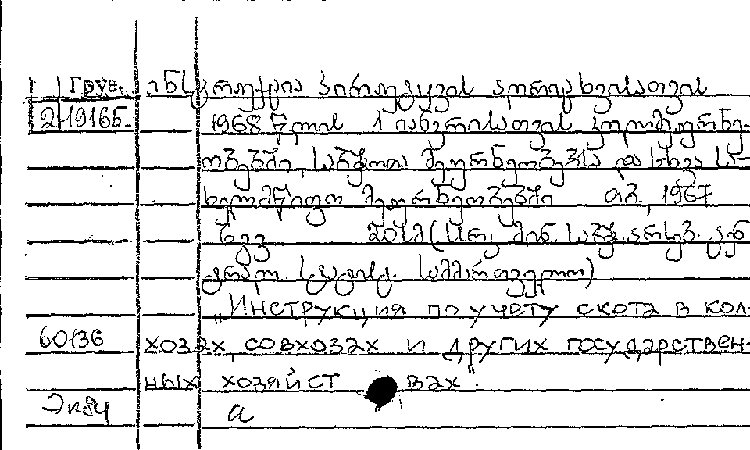 Груз. ინსტრუქცია პირუტყვის აღრიცხვისათვის
2-19165. 1968 წლის 1 იანვრისათვის კოლმეურნე-
ობებში, საბჭოთა მეურნეობებსა და სხვა სა-
ხელმწიფო მეურნეობებში 1967
20
სტატისტ. სამმართველო)
„Инструкция по учету скота в кол-
60136 хозах, совхозах и других государствен-
ных хозяйст вах".
Экз4 а